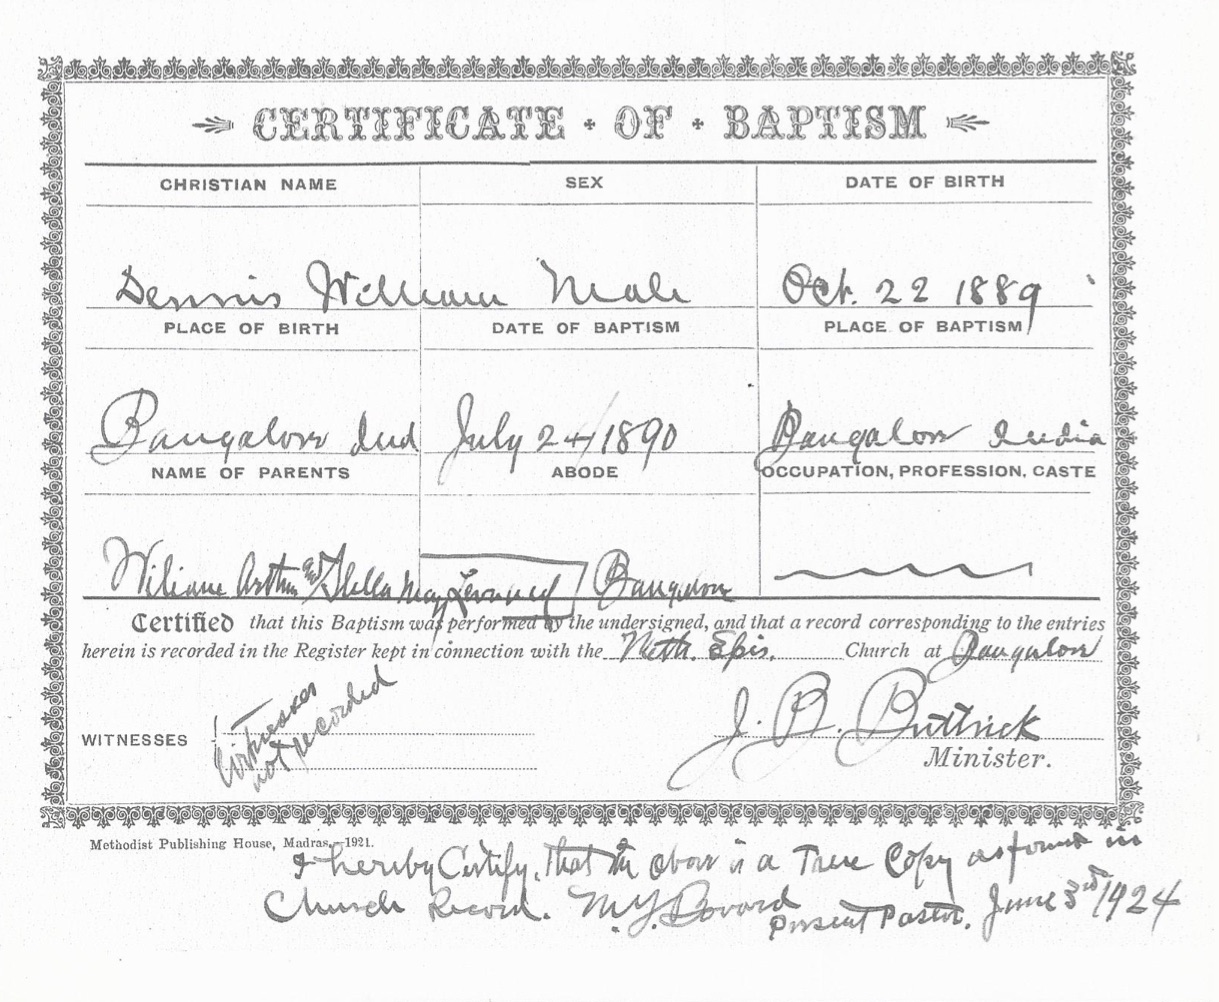 CERTIFICATE · OF · BAPTISM
CHRISTIAN NAME SEX DATE OF BIRTH
Dennis William Male Oct. 22 1889
PLACE OF BIRTH DATE OF BAPTISM PLACE OF BAPTISM
Bangalore Ind July 24/1890 Bangalore India
NAME OF PARENTS ABODE OCCUPATION, PROFESSION, CASTE
Arthur Stella May Leonard Bangalore
Certified that this Baptism was performed by the undersigned, and that a record corresponding to the entries
herein is recorded in the Register kept in connection with the Meth. Epis. Church at Bangalore
Witnesses
not recorded
J. B. Buttrick
WITNESSES
Minister.
Methodist Publishing House, Madras,—1921.
I hereby Certify, that the above is a True Copy as found in
Church Record. M.Y. Bovard
Present Pastor. June 3rd/1924